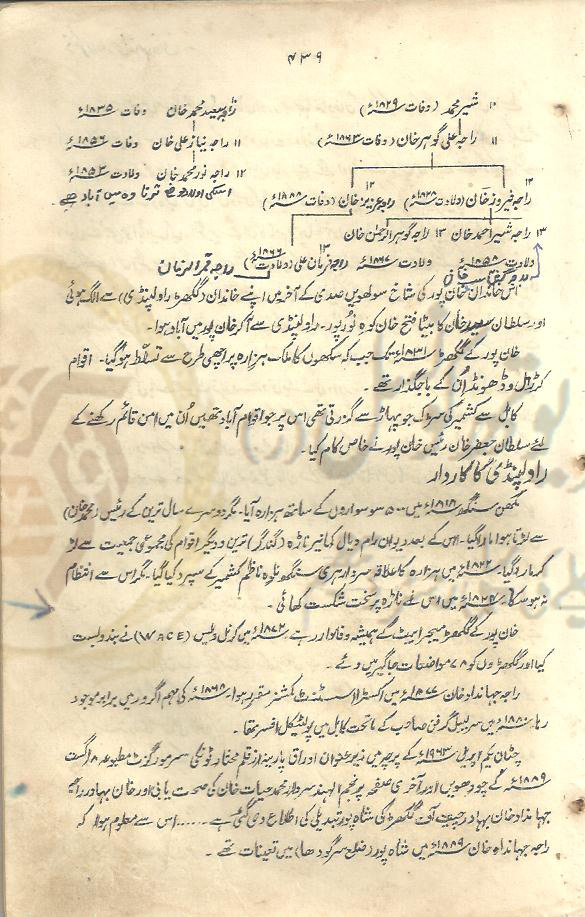 ۴۳۹
۱۰ شیر محمد (وفات ۱۸۲۹ء) راجہ سعید محمد خان وفات ۱۸۳۵ء
۱۱ راجہ علی گوہر خان (وفات ۱۸۶۳ء) ۱۱ راجہ نیاز علی خان وفات ۱۸۵۶ء
۱۲ راجہ نور محمد خان ولادت ۱۸۵۳ء
۱۲ راجہ فیروز خان (ولادت ۱۸۲۸ء) ۱۲ راجہ عزیز خان (وفات ۱۸۸۸ء)
۱۳ راجہ شیر احمد خان ۱۳ راجہ گوہر الرحمٰن خان
ولادت ۱۸۵۸ء ولادت ۱۸۶۷ء ۱۳ راجہ قربان علی (ولادت ۱۸۶۶ء) راجہ قمر الزمان
اس خاندان خان پور کی شاخ سولھویں صدی کے آخر میں اپنے خاندان (گکھڑ راولپنڈی) سے الگ ہوئی
اور سلطان سعید خان کا بیٹا فتح خان کوہ نور پور۔ راولپنڈی سے آکر خان پور میں آباد ہوا۔
خان پور کے گکھڑ ۱۸۳۱ء تک جب کہ سکھوں کا ملک ہزارہ پر اچھی طرح سے تسلّط ہو گیا۔ اقوام
کڑرال و ڈھونڈ اُن کے باجگذار تھے۔
کابل سے کشمیر کی سڑک جو پہاڑ سے گزرتی تھی اس پر جو اقوام آباد تھیں اُن میں امن قائم رکھنے کے
لئے سلطان جعفر خان رئیس خان پور نے خاص کام کیا۔
راولپنڈی کا کاردار
مکھن سنگھ ۱۸۱۸ء میں ۵۰۰ سو سواروں کے ساتھ ہزارہ آیا۔ مگر دوسرے سال ترین کے رئیس (محمد خان)
سے لڑتا ہوا مارا گیا۔ اس کے بعد دیوان رام دیال کمانیر ناڑہ (گندگر) ترین و دیگر اقوام کی مجموعی جمعیت سے لڑ
کر مارا گیا۔ ۱۸۲۲ء میں ہزارہ کا علاقہ سردار ہری سنگھ نلوہ ناظم کشمیر کے سپرد کیا گیا۔ مگر اس سے انتظام
نہ ہو سکا۔ میں اس نے ناڑہ پر سخت شکست کھائی۔
خان پور کے گکھڑ میجر ایبٹ کے ہمیشہ وفادار رہے۔ ۱۸۷۲ء میں کرنل ویس (WACE) نے بندوبست
کیا اور گکھڑوں کو ۷۸ مواضعات جاگیر میں دئے۔
راجہ جہانداد خان ۱۸۷۷ء میں اکسٹرا اسسٹنٹ کمشنر مقرر ہوا۔ ۱۸۶۸ء کی مہم اگرور میں برابر موجود
رہا۔ ۱۸۸۰ء میں سر لیپل گرفن صاحب کے ماتحت کابل میں پولٹیکل افسر تھا۔
چٹان یکم اپریل ۱۹۶۳ء کے پرچہ میں زیر عنوان اوراق پارینہ از قلم مختار ٹونکی سرمور گزٹ مطبوعہ ۸ اگست
۱۸۸۹ء کے چودھویں اور آخری صفحہ پر نجم الہند سردار محمد حیات خان کی صحت یابی اور خان بہادر راجہ
جہانداد خان بہادر چیف آف گکھڑ کی شاہ پور تبدیلی کی اطلاع دی گئی ہے ...... اس سے معلوم ہوا کہ
راجہ جہانداد خان ۱۸۸۹ء میں شاہ پور (ضلع سرگودھا) میں تعینات تھے۔